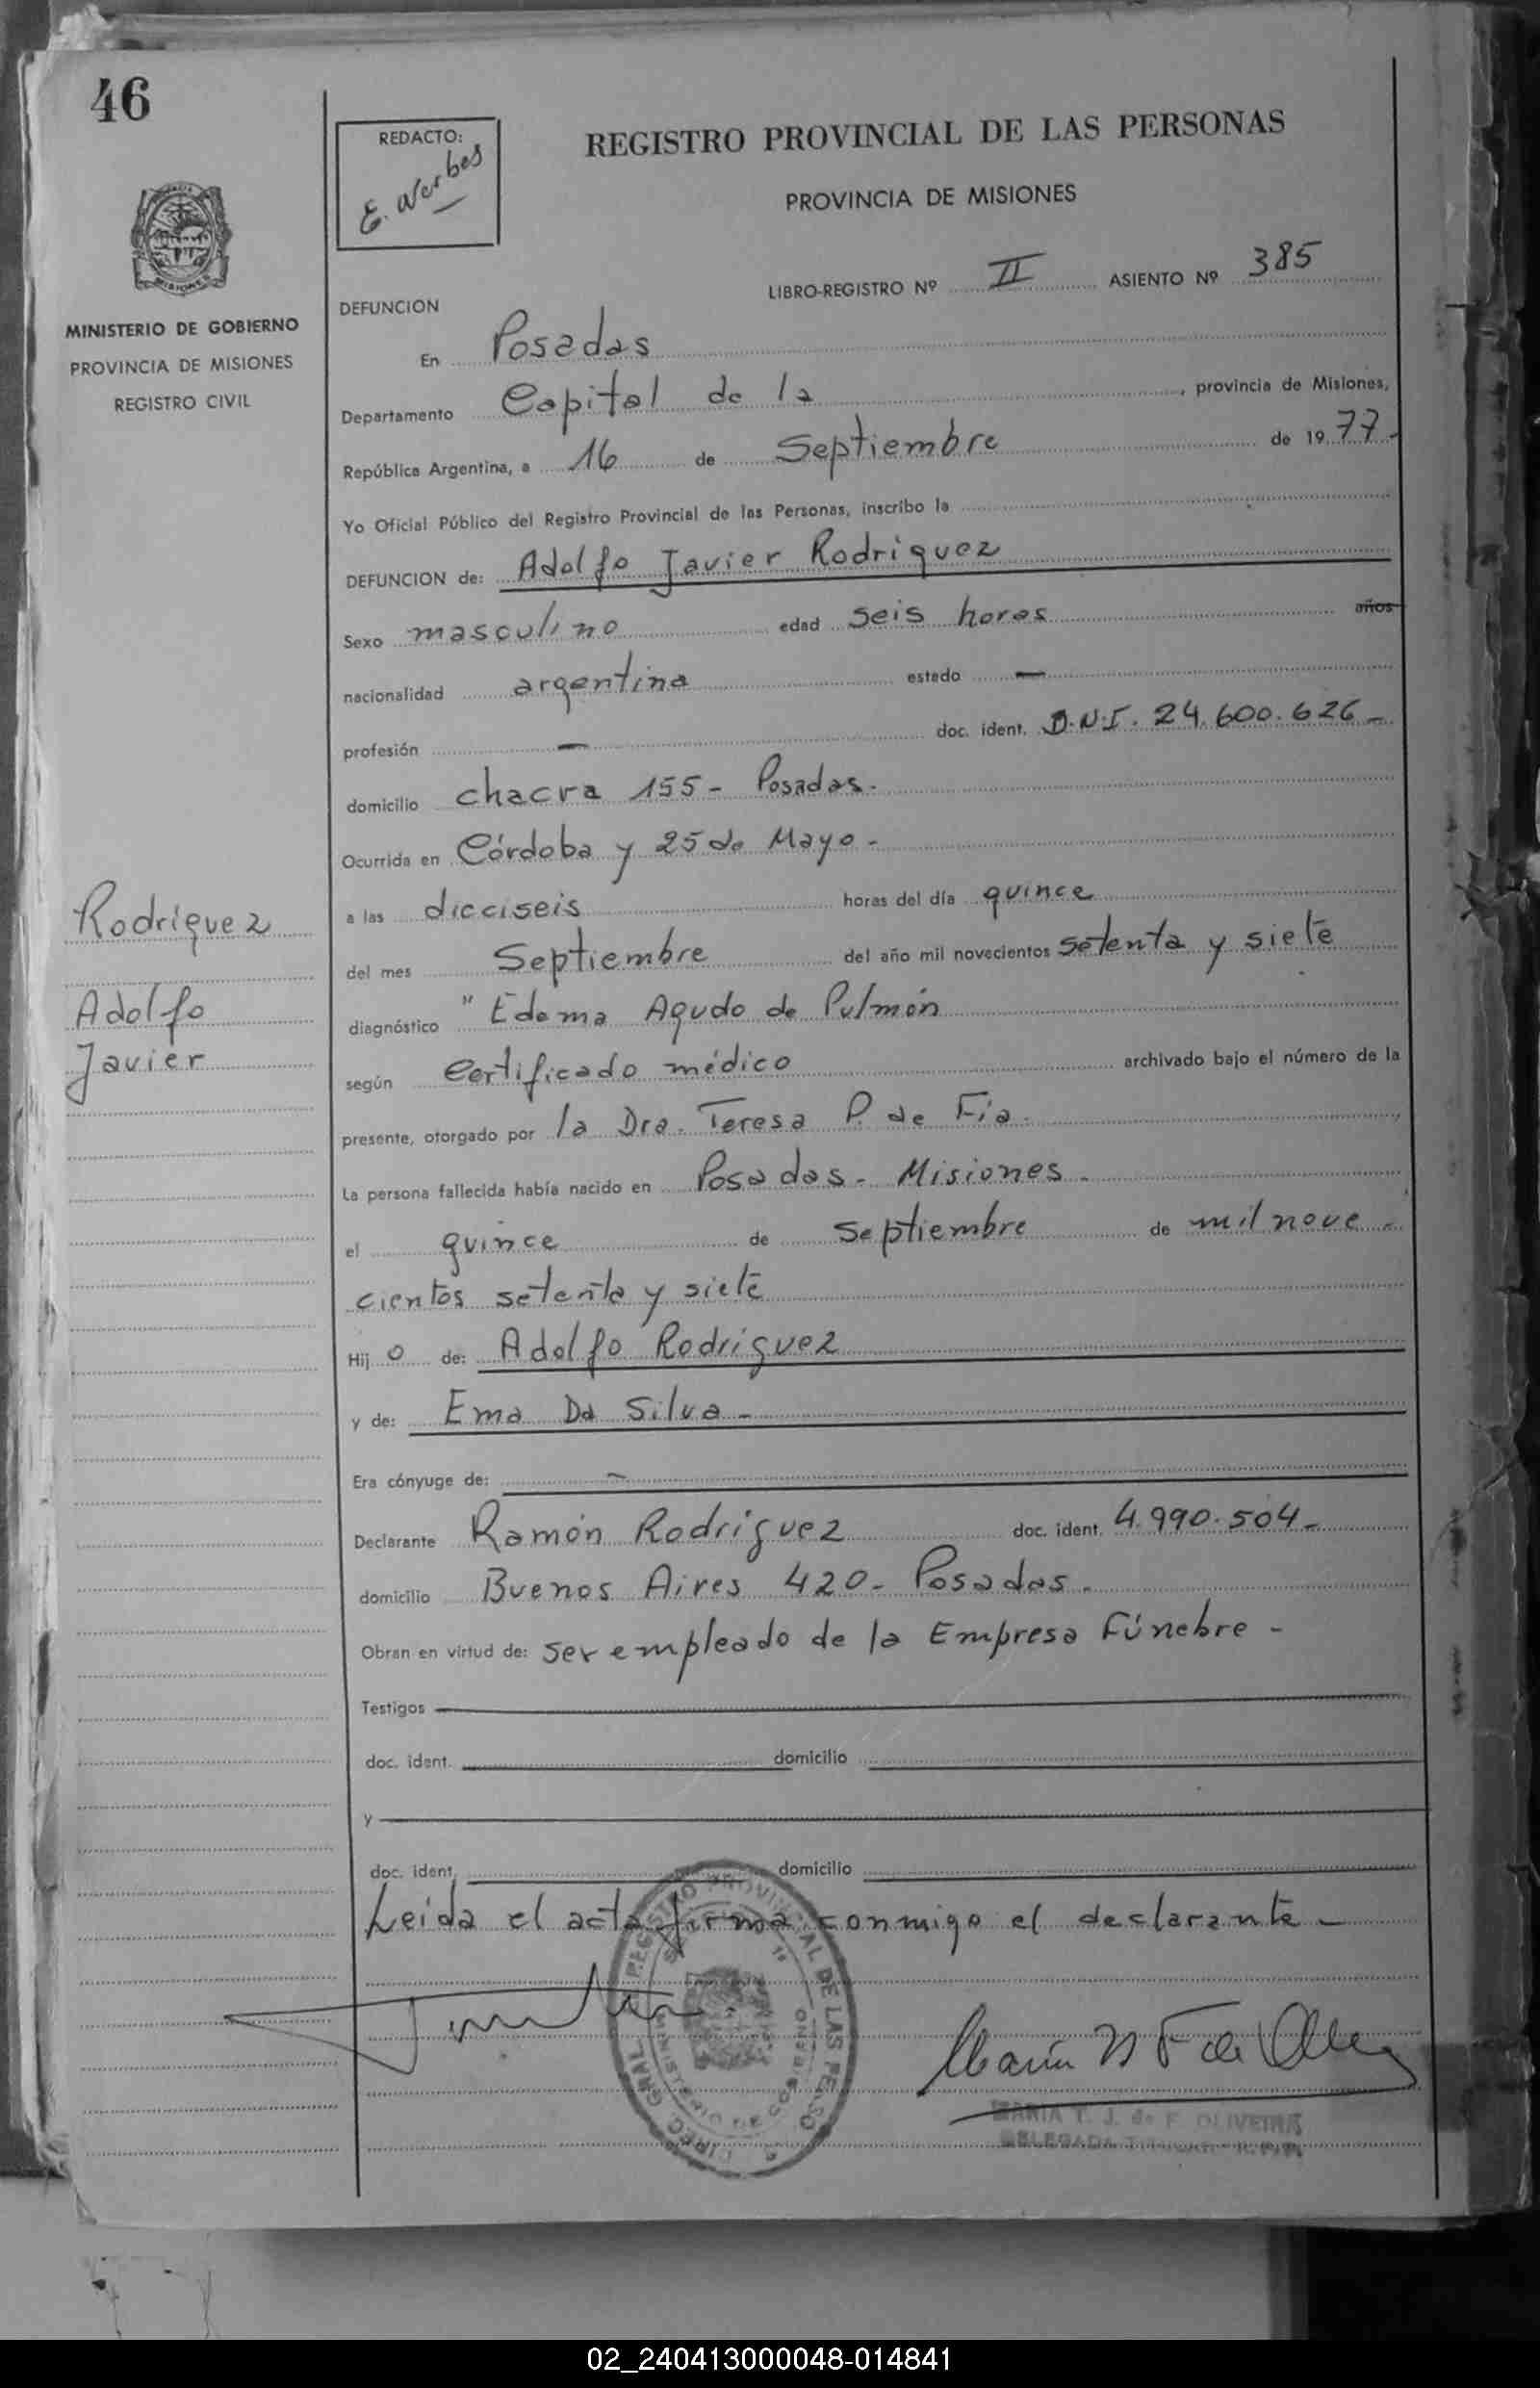 46
REDACTO:
E. Werbes
REGISTRO PROVINCIAL DE LAS PERSONAS
PROVINCIA DE MISIONES
MISIONES
MINISTERIO DE GOBIERNO
PROVINCIA DE MISIONES
REGISTRO CIVIL
LIBRO-REGISTRO Nº II ASIENTO Nº 385
DEFUNCION
En Posadas
Departamento Capital de la, provincia de Misiones,
República Argentina, a 16 de Septiembre de 1977-
Yo Oficial Público del Registro Provincial de las Personas, inscribo la
DEFUNCION de: Adolfo Javier Rodriguez
Sexo masculino edad seis horas años
nacionalidad argentina estado —
profesión — doc. ident. D.N.I. 24.600.626-
domicilio chacra 155- Posadas.
Ocurrida en Córdoba y 25 de Mayo-
a las dieciseis horas del día quince
del mes Septiembre del año mil novecientos setenta y siete
diagnóstico "Edema Agudo de Pulmón
según Certificado médico archivado bajo el número de la
presente, otorgado por la Dra. Teresa P. de Fia.
La persona fallecida había nacido en Posadas- Misiones-
el quince de Septiembre de mil nove-
cientos setenta y siete
Hijo de: Adolfo Rodriguez
y de: Ema Da Silva-
Era cónyuge de: -
Declarante Ramón Rodriguez doc. ident. 4.990.504-
domicilio Buenos Aires 420- Posadas.
Obran en virtud de: ser empleado de la Empresa Fúnebre-
Testigos
doc. ident. domicilio
y
doc. ident. domicilio
Leida el acta firma conmigo el declarante-
Rodriguez
Adolfo
Javier
DIREC. GRAL. REGISTRO PROVINCIAL DE LAS PERSO
MINISTERIO DE GOBIERNO
MARIA T. J. de F. OLIVEIRA
DELEGADA TITULAR R.P.P.
02_240413000048-014841